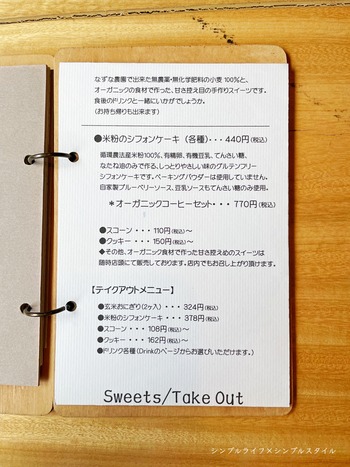 なずな農園で出来た無農薬・無化学肥料の小麦100%と、
オーガニックの食材で作った、甘さ控え目の手作りスイーツです。
食後のドリンクと一緒にいかがでしょうか。
(お持ち帰りも出来ます)
●米粉のシフォンケーキ(各種)・・・440円(税込)
循環農法産米粉100%、有精卵、有機豆乳、てんさい糖、
なたね油のみで作る、しっとりやさしい味のグルテンフリー
シフォンケーキです。ベーキングパウダーは使用していません。
自家製ブルーベリーソース、豆乳ソースもてんさい糖のみ使用。
＊オーガニックコーヒーセット・・・770円(税込)
●スコーン・・・110円(税込)～
●クッキー・・・150円(税込)～
◆その他、オーガニック食材で作った甘さ控えめのスイーツは
随時店頭にて販売しております。店内でもお召し上がり頂けます。
【テイクアウトメニュー】
●玄米おにぎり(2ヶ入)・・・324円(税込)
●米粉のシフォンケーキ・・・378円(税込)
●スコーン・・・108円(税込)～
●クッキー・・・162円(税込)～
●ドリンク各種(Drinkのページからお選びいただけます。)
Sweets/Take Out
シンプルライフ×シンプルスタイル